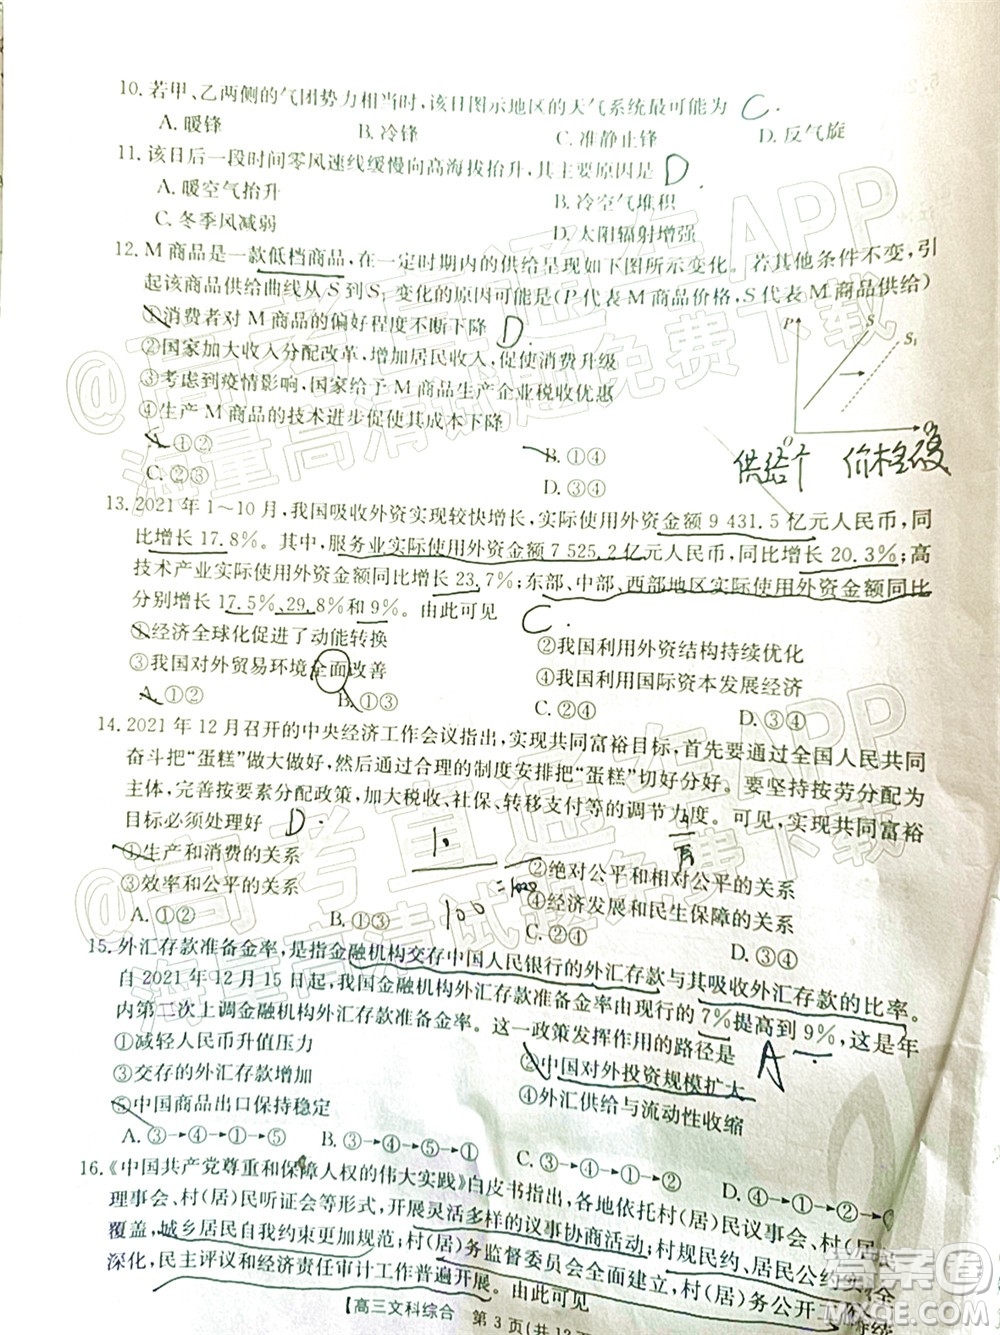 10. 若甲、乙两侧的气团势力相当时,该日图示地区的天气系统最可能为 C.
A. 暖锋 B. 冷锋 C. 准静止锋 D. 反气旋
11. 该日后一段时间零风速线缓慢向高海拔抬升,其主要原因是 D.
A. 暖空气抬升 B. 冷空气堆积
C. 冬季风减弱 D. 太阳辐射增强
12. M 商品是一款低档商品,在一定时期内的供给呈现如下图所示变化。若其他条件不变,引
起该商品供给曲线从 S 到 S₁ 变化的原因可能是(P 代表 M 商品价格,S 代表 M 商品供给)
①消费者对 M 商品的偏好程度不断下降 D
②国家加大收入分配改革,增加居民收入,促使消费升级
③考虑到疫情影响,国家给予 M 商品生产企业税收优惠
④生产 M 商品的技术进步促使其成本下降
A. ①② B. ①④
C. ②③ D. ③④
P S S₁
O Q
供给个 价格
13. 2021 年 1~10 月,我国吸收外资实现较快增长,实际使用外资金额 9 431.5 亿元人民币,同
比增长 17.8%。其中,服务业实际使用外资金额 7 525.2 亿元人民币,同比增长 20.3%;高
技术产业实际使用外资金额同比增长 23.7%;东部、中部、西部地区实际使用外资金额同比
分别增长 17.5%、29.8%和 9%。由此可见 C.
①经济全球化促进了动能转换 ②我国利用外资结构持续优化
③我国对外贸易环境全面改善 ④我国利用国际资本发展经济
A. ①② B. ①③ C. ②④ D. ③④
14. 2021 年 12 月召开的中央经济工作会议指出,实现共同富裕目标,首先要通过全国人民共同
奋斗把“蛋糕”做大做好,然后通过合理的制度安排把“蛋糕”切好分好。要坚持按劳分配为
主体,完善按要素分配政策,加大税收、社保、转移支付等的调节力度。可见,实现共同富裕
目标必须处理好 D.
①生产和消费的关系 ②绝对公平和相对公平的关系
③效率和公平的关系 ④经济发展和民生保障的关系
A. ①② B. ①③ C. ②④ D. ③④
100
15. 外汇存款准备金率,是指金融机构交存中国人民银行的外汇存款与其吸收外汇存款的比率。
自 2021 年 12 月 15 日起,我国金融机构外汇存款准备金率由现行的 7%提高到 9%,这是年
内第二次上调金融机构外汇存款准备金率。这一政策发挥作用的路径是 A
①减轻人民币升值压力 ②中国对外投资规模扩大
③交存的外汇存款增加 ④外汇供给与流动性收缩
⑤中国商品出口保持稳定
A. ③→④→①→⑤ B. ③→④→⑤→① C. ③→④→①→② D. ④→③→①→
16. 《中国共产党尊重和保障人权的伟大实践》白皮书指出,各地依托村(居)民议事会、村(居)民
理事会、村(居)民听证会等形式,开展灵活多样的议事协商活动;村规民约、居民公约实现全
覆盖,城乡居民自我约束更加规范;村(居)务监督委员会全面建立,村(居)务公开
深化,民主评议和经济责任审计工作普遍开展。
【高三文科综合 第 3 页(共 12
@高考直通车APP
海量高清试题免费下载
@高考直通车APP
海量高清试题免费下载
答案圈